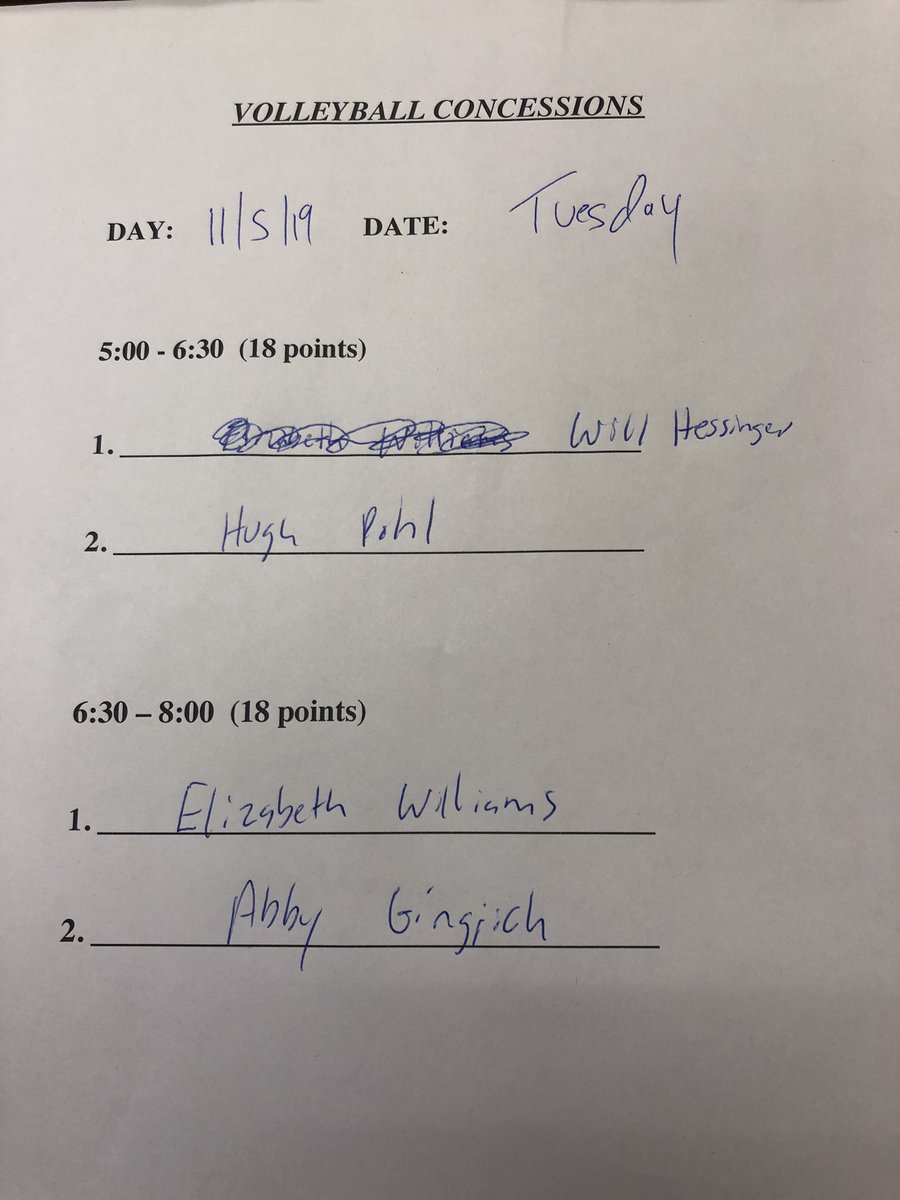 VOLLEYBALL CONCESSIONS
DAY: 11/5/19 DATE: Tuesday
5:00 - 6:30 (18 points)
1. Will Hessinger
2. Hugh Pohl
6:30 – 8:00 (18 points)
1. Elizabeth Williams
2. Abby Gingrich